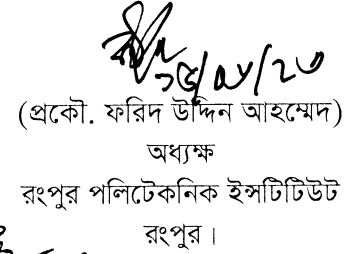 (প্রকৌ. ফরিদ উদ্দিন আহম্মেদ)
অধ্যক্ষ
রংপুর পলিটেকনিক ইন্সটিটিউট
রংপুর।